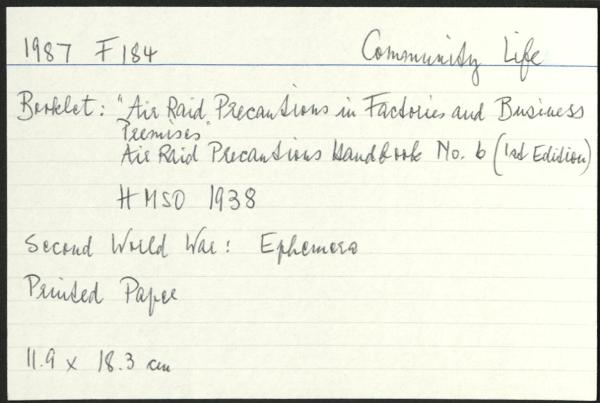 1987 F184 Community Life
Booklet: "Air Raid Precautions in Factories and Business
Premises"
Air Raid Precautions Handbook No. 6 (1st Edition)
HMSO 1938
Second World War: Ephemera
Printed Paper
11.9 x 18.3 cm